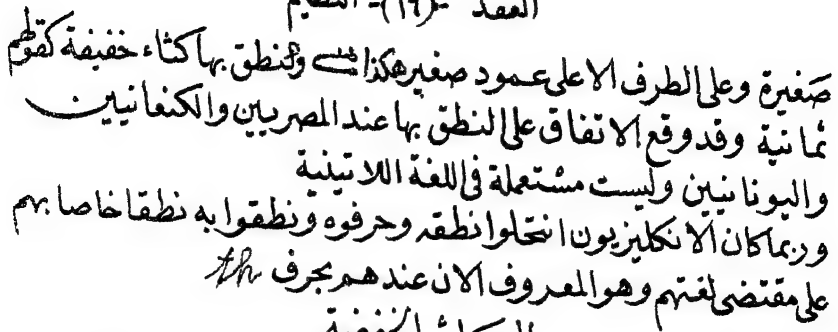 العقد -(١٩)- النظيم
صغيرة وعلى الطرف الاعلى عمود صغير هكذا وينطق بها كثاء خفيفة كقولهم
ثمانية وقد وقع الاتفاق على النطق بها عند المصريين والكنعانيين
واليونانيين وليست مستعملة في اللغة اللاتينية
وربما كان الانكليزيون انتحلوا نطقه وحرفوه ونطقوا به نطقا خاصا بهم
على مقتضى لغتهم وهو المعروف الان عندهم بحرف th